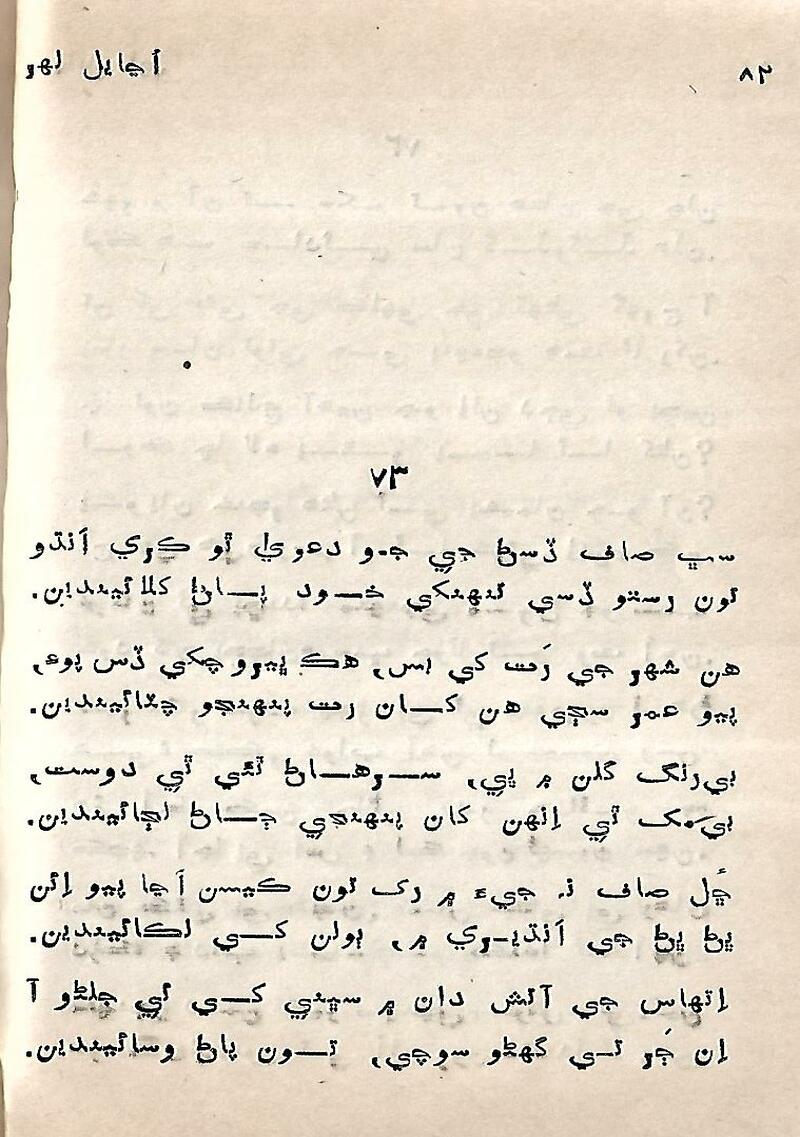 ۸۲
اڃايل لهر
۷۳
سڀ صاف ڏسڻ جي جو دعويٰ ٿو ڪري اَنڌو
تون رستو ڏسي تنهنکي خود پاڻ کلائيندين.
هن شهر جي رَت کي بس، هڪ ڀيرو چکي ڏس پوءِ،
پيو عمر سڄي هن کان رت پنهنجو چٽائيندين.
بي‌رنگ گلن ۾ ڀي، سرهاڻ ٿئي ٿي دوست،
بي‌مُک ٿي اِنهن کان پنهنجي ڄاڻ لڄائيندين.
ڇُل صاف نہ جيءَ ۾ رک تون ڪيسن اَڃا پيو اِئن
ڀڻ ڀڻ جي اَنڌيري ۾، ٻولن کي لڪائيندين.
اِتهاس جي آتش دان ۾ سڀني کي ئي جلڻو آ
اِن ڳر تي گهڻو سوچي، تون پاڻ وسائيندين.